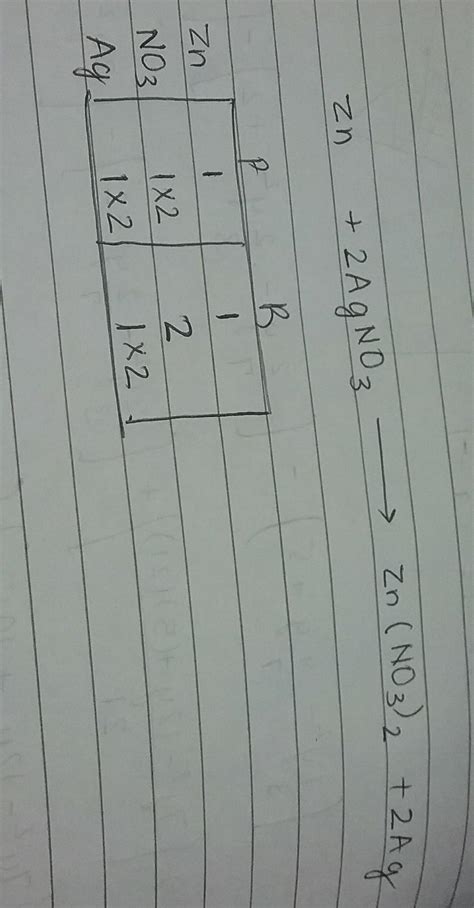 Zn + 2AgNO3 → Zn(NO3)2 + 2Ag
P R
Zn 1 1
NO3 1×2 2
Ag 1×2 1×2